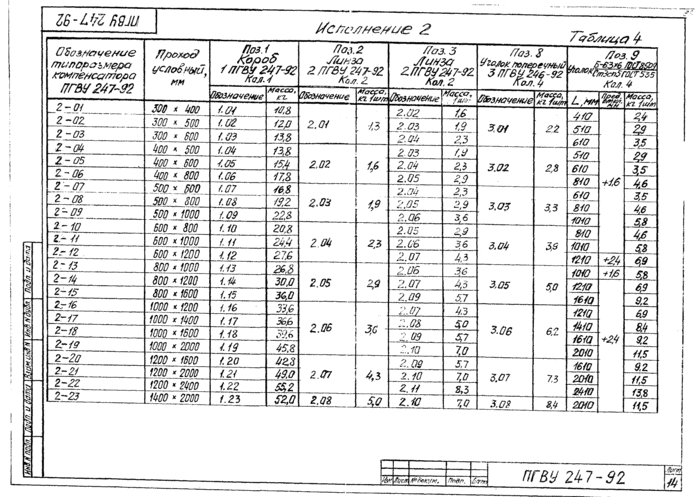 ПГВУ 247-92
Исполнение 2
Таблица 4
Обозначение типоразмера компенсатора ПГВУ 247-92 | Проход условный, мм | Поз. 1 Короб 1 ПГВУ 247-92 Кол. 1 | Поз. 2 Линза 2 ПГВУ 247-92 Кол. 2 | Поз. 3 Линза 2 ПГВУ 247-92 Кол. 2 | Поз. 8 Уголок поперечный 3 ПГВУ 246-92 Кол. 4 | Поз. 9 Уголок Кол. 4
Обозначение | Масса, кг | Обозначение | Масса, кг 1шт | Обозначение | Масса, 1шт | Обозначение | Масса, кг 1шт | L, мм | Масса, кг 1шт
2-01 | 300 × 400 | 1.01 | 10,8 | 2.01 | 1,3 | 2.02 | 1,6 | 3.01 | 2,2 | 410 | +1,6 | 2,4
2-02 | 300 × 500 | 1.02 | 12,0 | 2.03 | 1,9 | 510 | 2,9
2-03 | 300 × 600 | 1.03 | 13,8 | 2.04 | 2,3 | 610 | 3,5
2-04 | 400 × 500 | 1.04 | 13,8 | 2.02 | 1,6 | 2.03 | 1,9 | 3.02 | 2,8 | 510 | 2,9
2-05 | 400 × 600 | 1.05 | 15,4 | 2.04 | 2,3 | 610 | 3,5
2-06 | 400 × 800 | 1.06 | 17,8 | 2.05 | 2,9 | 810 | 4,6
2-07 | 500 × 600 | 1.07 | 16,8 | 2.03 | 1,9 | 2.04 | 2,3 | 3.03 | 3,3 | 610 | 3,5
2-08 | 500 × 800 | 1.08 | 19,2 | 2.05 | 2,9 | 810 | 4,6
2-09 | 500 × 1000 | 1.09 | 22,8 | 2.06 | 3,6 | 1010 | 5,8
2-10 | 600 × 800 | 1.10 | 20,8 | 2.04 | 2,3 | 2.05 | 2,9 | 3.04 | 3,9 | 810 | 4,6
2-11 | 600 × 1000 | 1.11 | 24,4 | 2.06 | 3,6 | 1010 | 5,8
2-12 | 600 × 1200 | 1.12 | 27,6 | 2.07 | 4,3 | 1210 | +24 | 6,9
2-13 | 800 × 1000 | 1.13 | 26,8 | 2.05 | 2,9 | 2.06 | 3,6 | 3.05 | 5,0 | 1010 | +1,6 | 5,8
2-14 | 800 × 1200 | 1.14 | 30,0 | 2.07 | 4,3 | 1210 | +24 | 6,9
2-15 | 800 × 1600 | 1.15 | 36,0 | 2.09 | 5,7 | 1610 | 9,2
2-16 | 1000 × 1200 | 1.16 | 33,6 | 2.06 | 3,6 | 2.07 | 4,3 | 3.06 | 6,2 | 1210 | 6,9
2-17 | 1000 × 1400 | 1.17 | 36,6 | 2.08 | 5,0 | 1410 | 8,4
2-18 | 1000 × 1600 | 1.18 | 39,6 | 2.09 | 5,7 | 1610 | 9,2
2-19 | 1000 × 2000 | 1.19 | 45,8 | 2.10 | 7,0 | 2010 | 11,5
2-20 | 1200 × 1600 | 1.20 | 42,8 | 2.07 | 4,3 | 2.09 | 5,7 | 3.07 | 7,3 | 1610 | 9,2
2-21 | 1200 × 2000 | 1.21 | 49,0 | 2.10 | 7,0 | 2010 | 11,5
2-22 | 1200 × 2400 | 1.22 | 55,2 | 2.11 | 8,3 | 2410 | 13,8
2-23 | 1400 × 2000 | 1.23 | 52,0 | 2.08 | 5,0 | 2.10 | 7,0 | 3.08 | 8,4 | 2010 | 11,5
ПГВУ 247-92
Лист
14